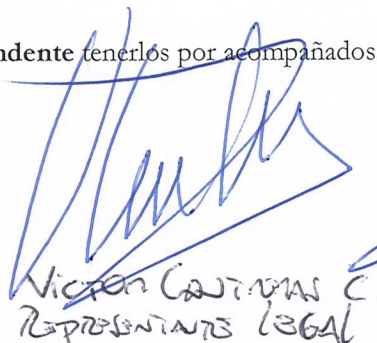 ndente tenerlos por acompañados
VICTOR CONTRERAS C
REPRESENTANTE LEGAL